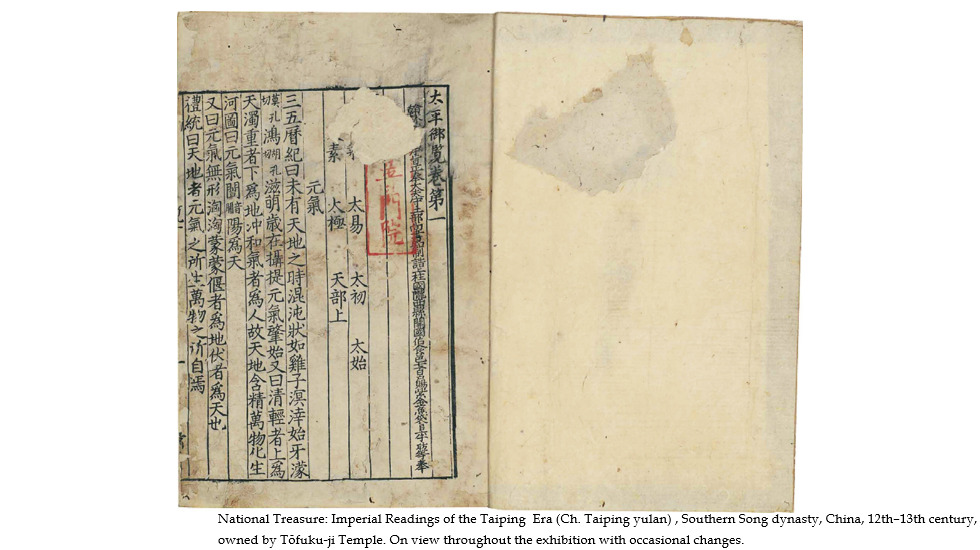 太平御覽卷第一
承旨正奉大夫守工部尚書知制誥上柱國隴西縣開國伯食邑七百戶賜紫金魚袋臣李昉等奉
門院
太易 太初 太始
素 太極 天部上
元氣
三五曆紀曰未有天地之時混沌狀如雞子溟涬始牙濛
莫孔切鴻胡孔切滋萌歲在攝提元氣肇始又曰清輕者上爲
天濁重者下爲地冲和氣者爲人故天地含精萬物化生
河圖曰元氣闓陽爲天
又曰元氣無形洶洶蒙蒙偃者爲地伏者爲天也
禮統曰天地者元氣之所生萬物之所自焉
National Treasure: Imperial Readings of the Taiping Era (Ch. Taiping yulan) , Southern Song dynasty, China, 12th–13th century,
owned by Tōfuku-ji Temple. On view throughout the exhibition with occasional changes.